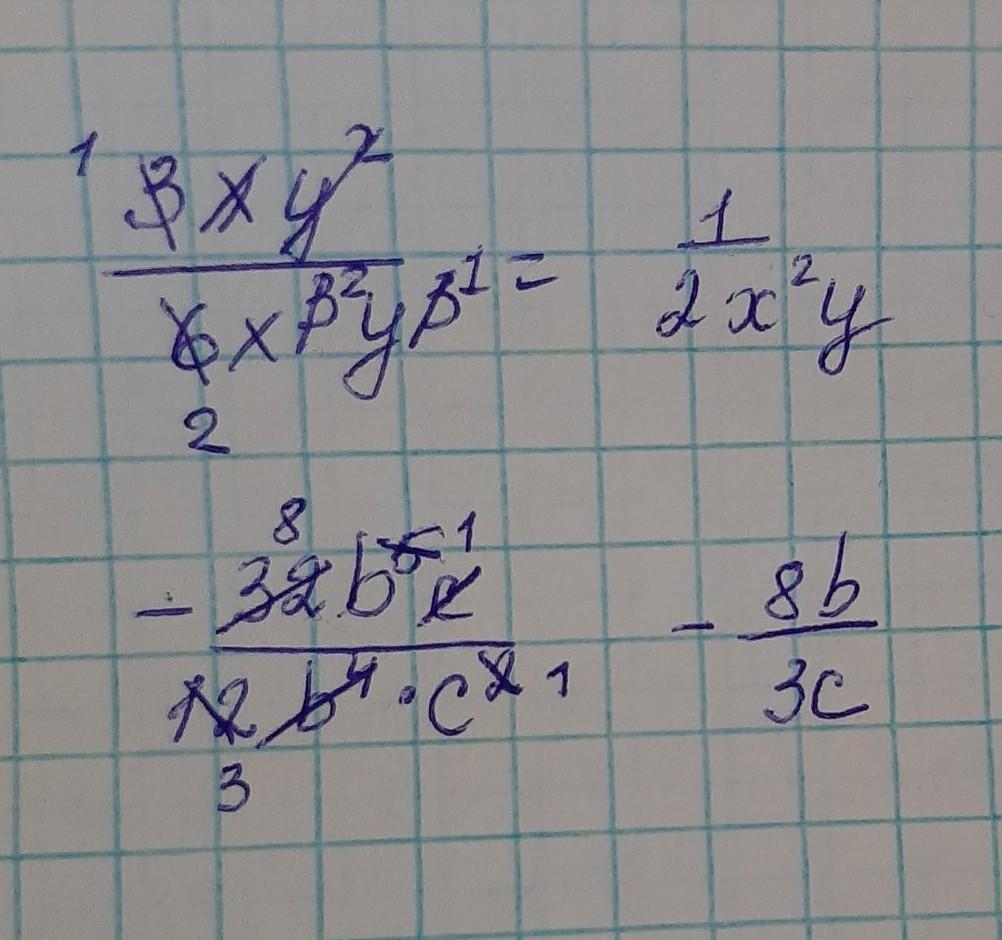 1 3xy²
6x³ ² y³ ¹ = 1/2x²y
2
8
- 32b⁵ ¹ c / 12b⁴ · c² ¹ - 8b/3c
3